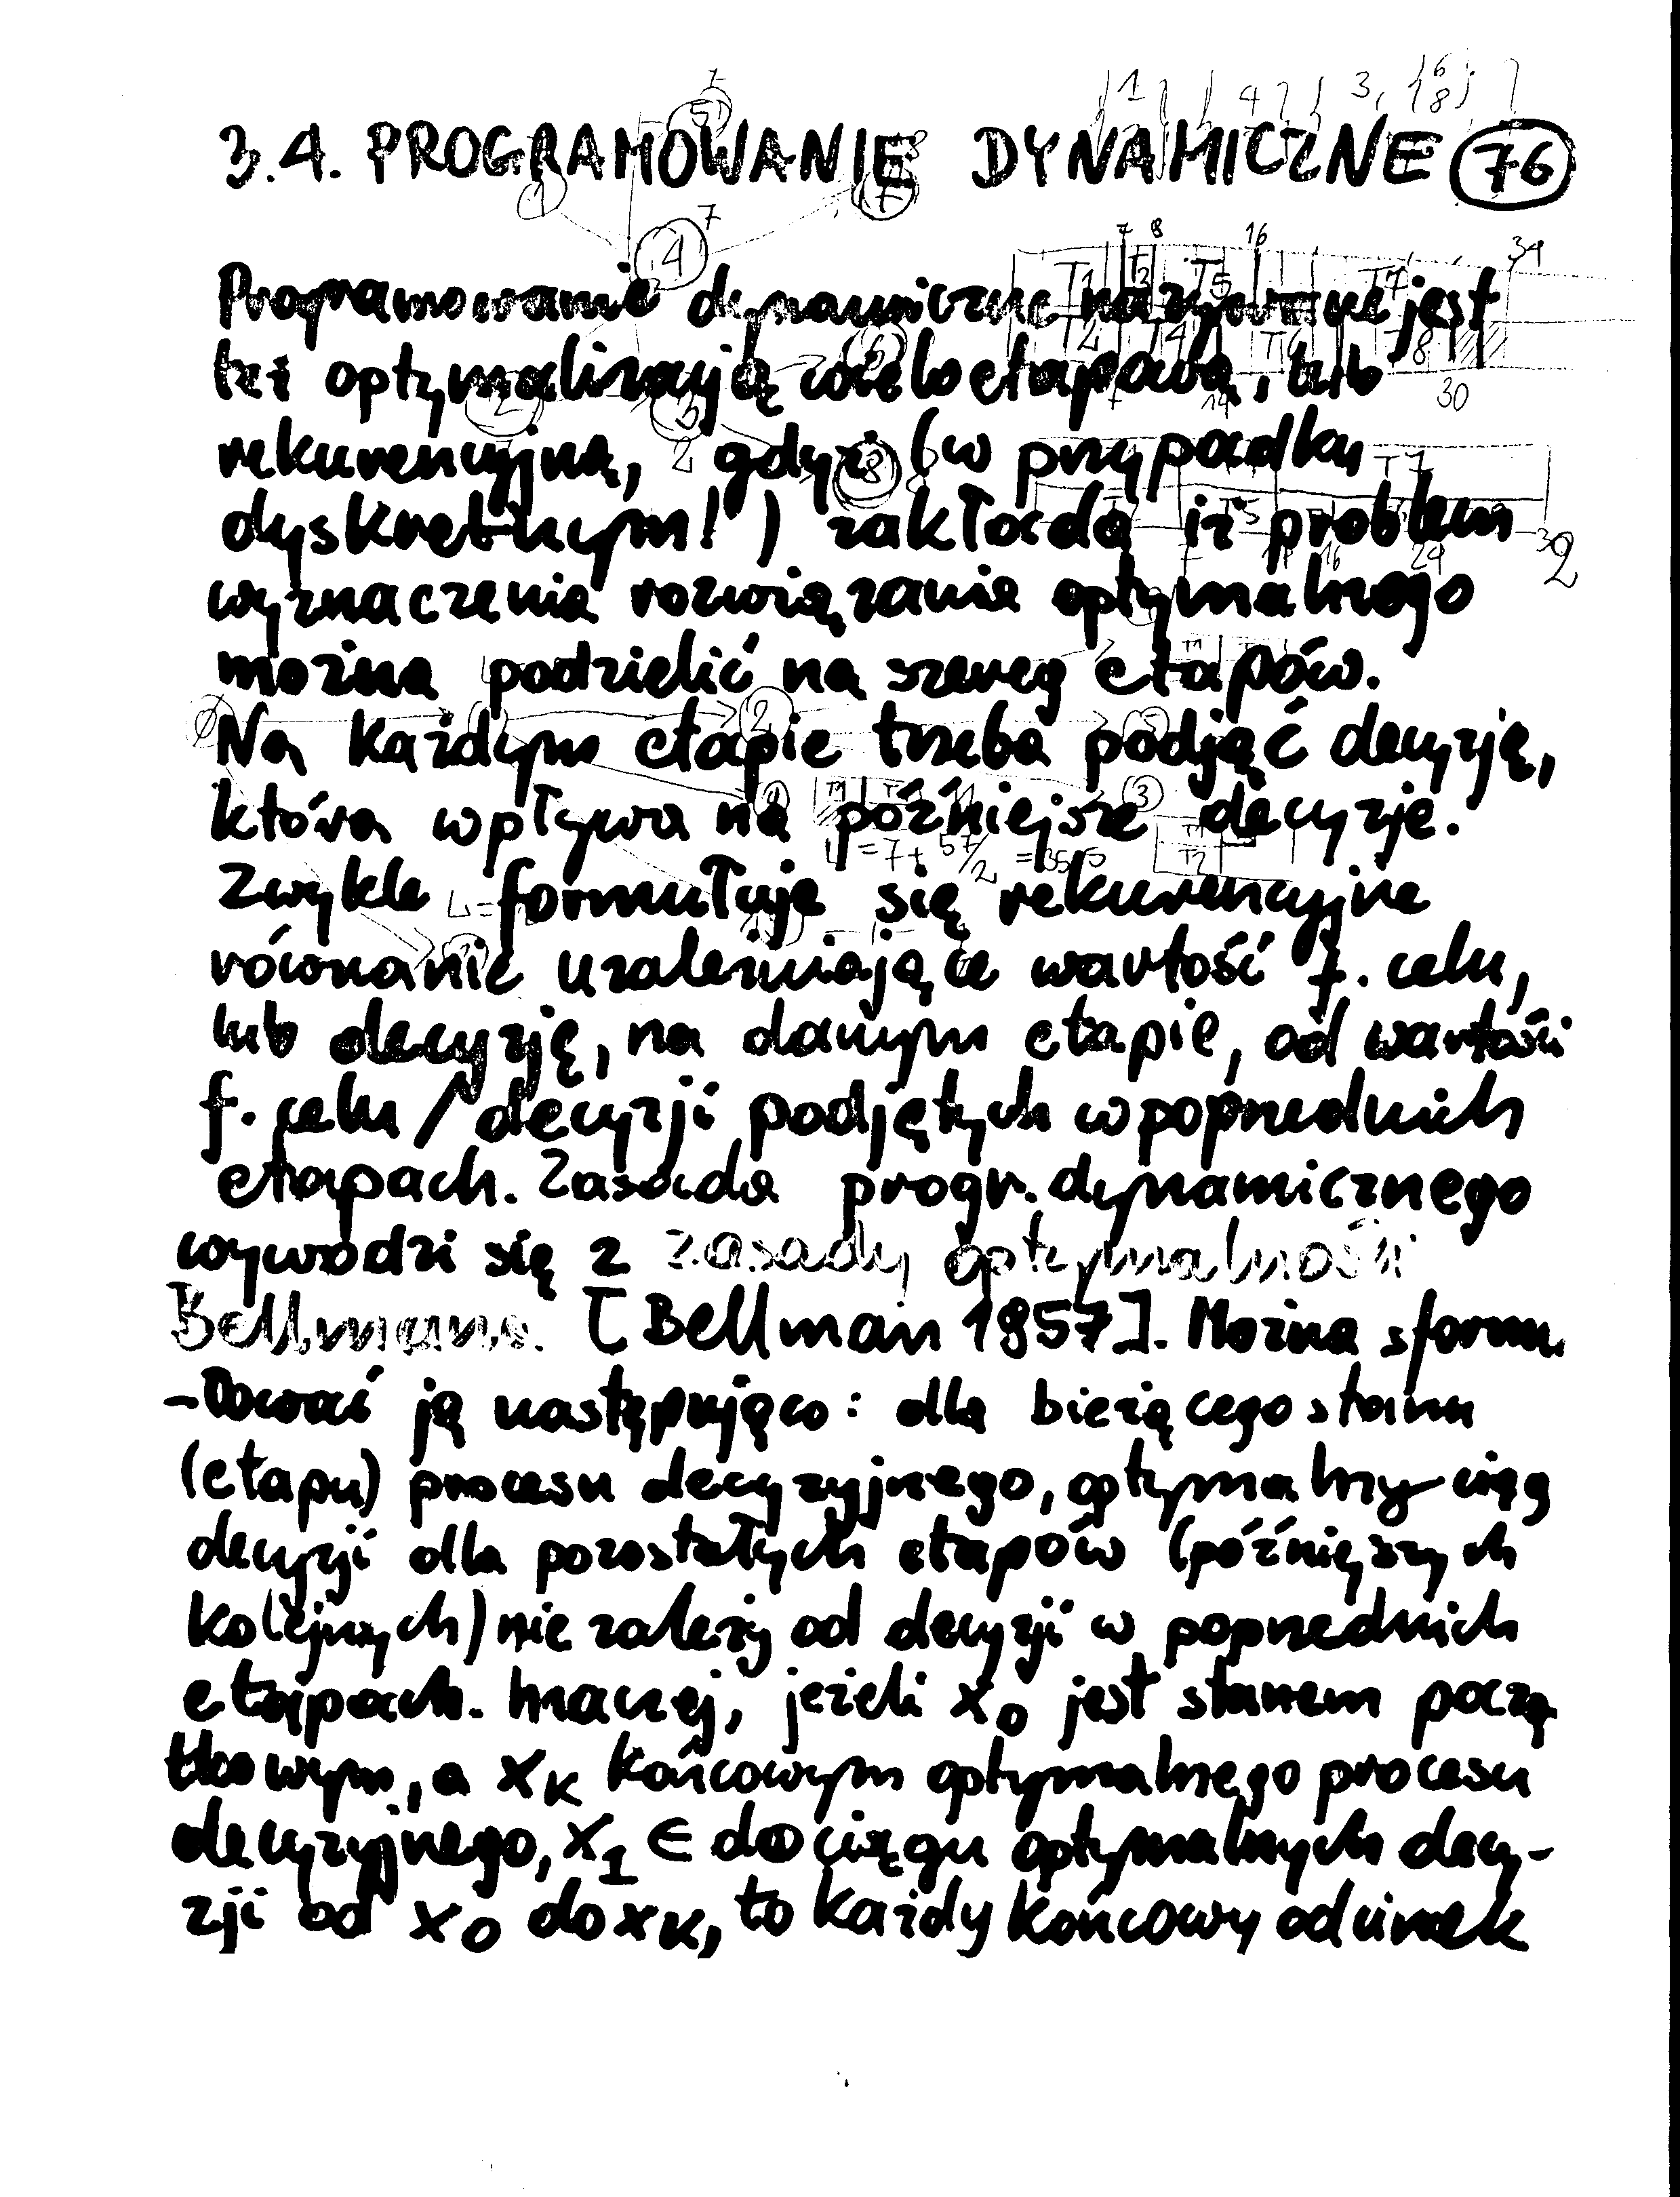 3.4. PROGRAMOWANIE DYNAMICZNE 76
Programowanie dynamiczne nazywane jest
też optymalizacją wieloetapową, lub
rekurencyjną, gdyż (w przypadku
dyskretnym!) zakłada iż problem
wyznaczenia rozwiązania optymalnego
można podzielić na szereg etapów.
Na każdym etapie trzeba podjąć decyzję,
która wpływa na późniejsze decyzje.
Zwykle formułuje się rekurencyjne
równanie uzależniające wartość f. celu,
lub decyzję, na danym etapie, od wartości
f. celu / decyzji podjętych w poprzednich
etapach. Zasada progr. dynamicznego
wywodzi się z zasady optymalności
Bellmana. [Bellman 1957]. Można sformu
-łować ją następująco: dla bieżącego stanu
(etapu) procesu decyzyjnego, optymalny ciąg
decyzji dla pozostałych etapów (późniejszych
kolejnych) nie zależy od decyzji w poprzednich
etapach. Inaczej, jeżeli x0 jest stanem począ
tkowym, a xK końcowym optymalnego procesu
decyzyjnego, x1 ∈ do ciągu optymalnych decy-
zji od x0 do xK, to każdy końcowy odcinek